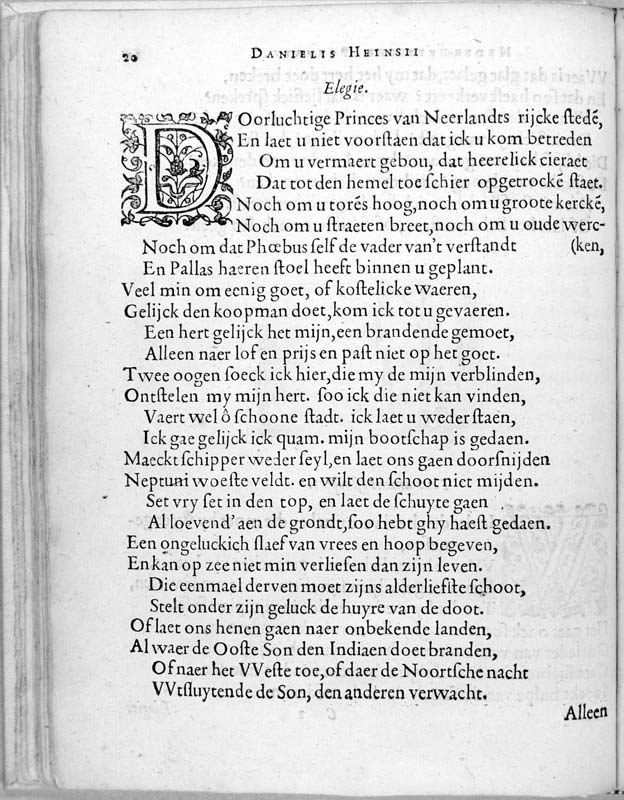 20 DANIELIS HEINSII
Elegie.
DOorluchtige Princes van Neerlandts rijcke stedē,
En laet u niet voorstaen dat ick u kom betreden
Om u vermaert gebou, dat heerelick cieraet
Dat tot den hemel toe schier opgetrockē staet.
Noch om u torēs hoog, noch om u groote kerckē,
Noch om u straeten breet, noch om u oude werc-
Noch om dat Phœbus self de vader van't verstandt (ken,
En Pallas haeren stoel heeft binnen u geplant.
Veel min om eenig goet, of kostelicke waeren,
Gelijck den koopman doet, kom ick tot u gevaeren.
Een hert gelijck het mijn, een brandende gemoet,
Alleen naer lof en prijs en past niet op het goet.
Twee oogen soeck ick hier, die my de mijn verblinden,
Ontstelen my mijn hert. soo ick die niet kan vinden,
Vaert wel ô schoone stadt. ick laet u weder staen,
Ick gae gelijck ick quam. mijn bootschap is gedaen.
Maeckt schipper weder seyl, en laet ons gaen doorsnijden
Neptuni woeste veldt. en wilt den schoot niet mijden.
Set vry set in den top, en laet de schuyte gaen
Al loevend' aen de grondt, soo hebt ghy haest gedaen.
Een ongeluckich slaef van vrees en hoop begeven,
En kan op zee niet min verliesen dan zijn leven.
Die eenmael derven moet zijns alderliefste schoot,
Stelt onder zijn geluck de huyre van de doot.
Of laet ons henen gaen naer onbekende landen,
Al waer de Ooste Son den Indiaen doet branden,
Of naer het VVeste toe, of daer de Noortsche nacht
VVtsluytende de Son, den anderen verwacht.
Alleen